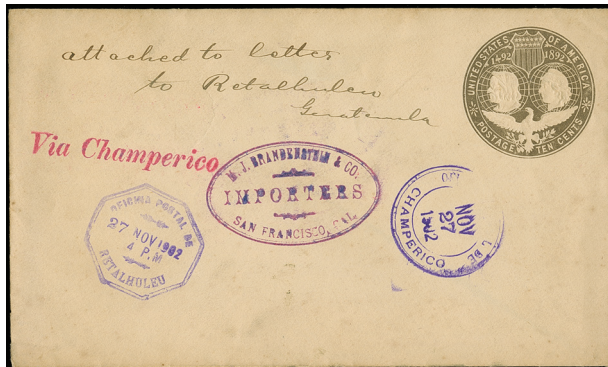 attached to letter
to Retalhuleu
Guatemala
UNITED STATES OF AMERICA
1492 1892
POSTAGE TEN CENTS
Via Champerico
M. J. BRANDENSTEIN & CO.
IMPORTERS
SAN FRANCISCO, CAL
OFICINA POSTAL DE
27 NOV 1902
4 P.M
RETALHULEU
L DE
NOV
27
1902
CHAMPERICO